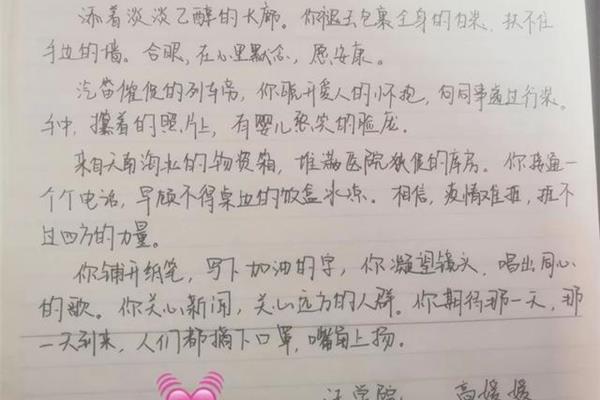 添着淡淡乙醇的长廊。你褪去包裹全身的白衣，扶不住
手边的墙。合眼，在心里默念，愿安康。
汽笛催促的列车旁，你脱开爱人的怀抱，向同事递过行囊。
手中，攥着的照片上，有婴儿憨笑的脸庞。
来自天南海北的物资箱，堆满医院狭促的库房。你接通一
个个电话，早顾不得桌边的饭盒冰凉。相信，疫情难抵，抵不
过四方的力量。
你铺开纸笔，写下加油的字，你凝望镜头，唱出同心
的歌。你关心新闻，关心远方的人群。你期待那一天，那
一天到来，人们都摘下口罩，嘴角上扬。
学院 高媛媛